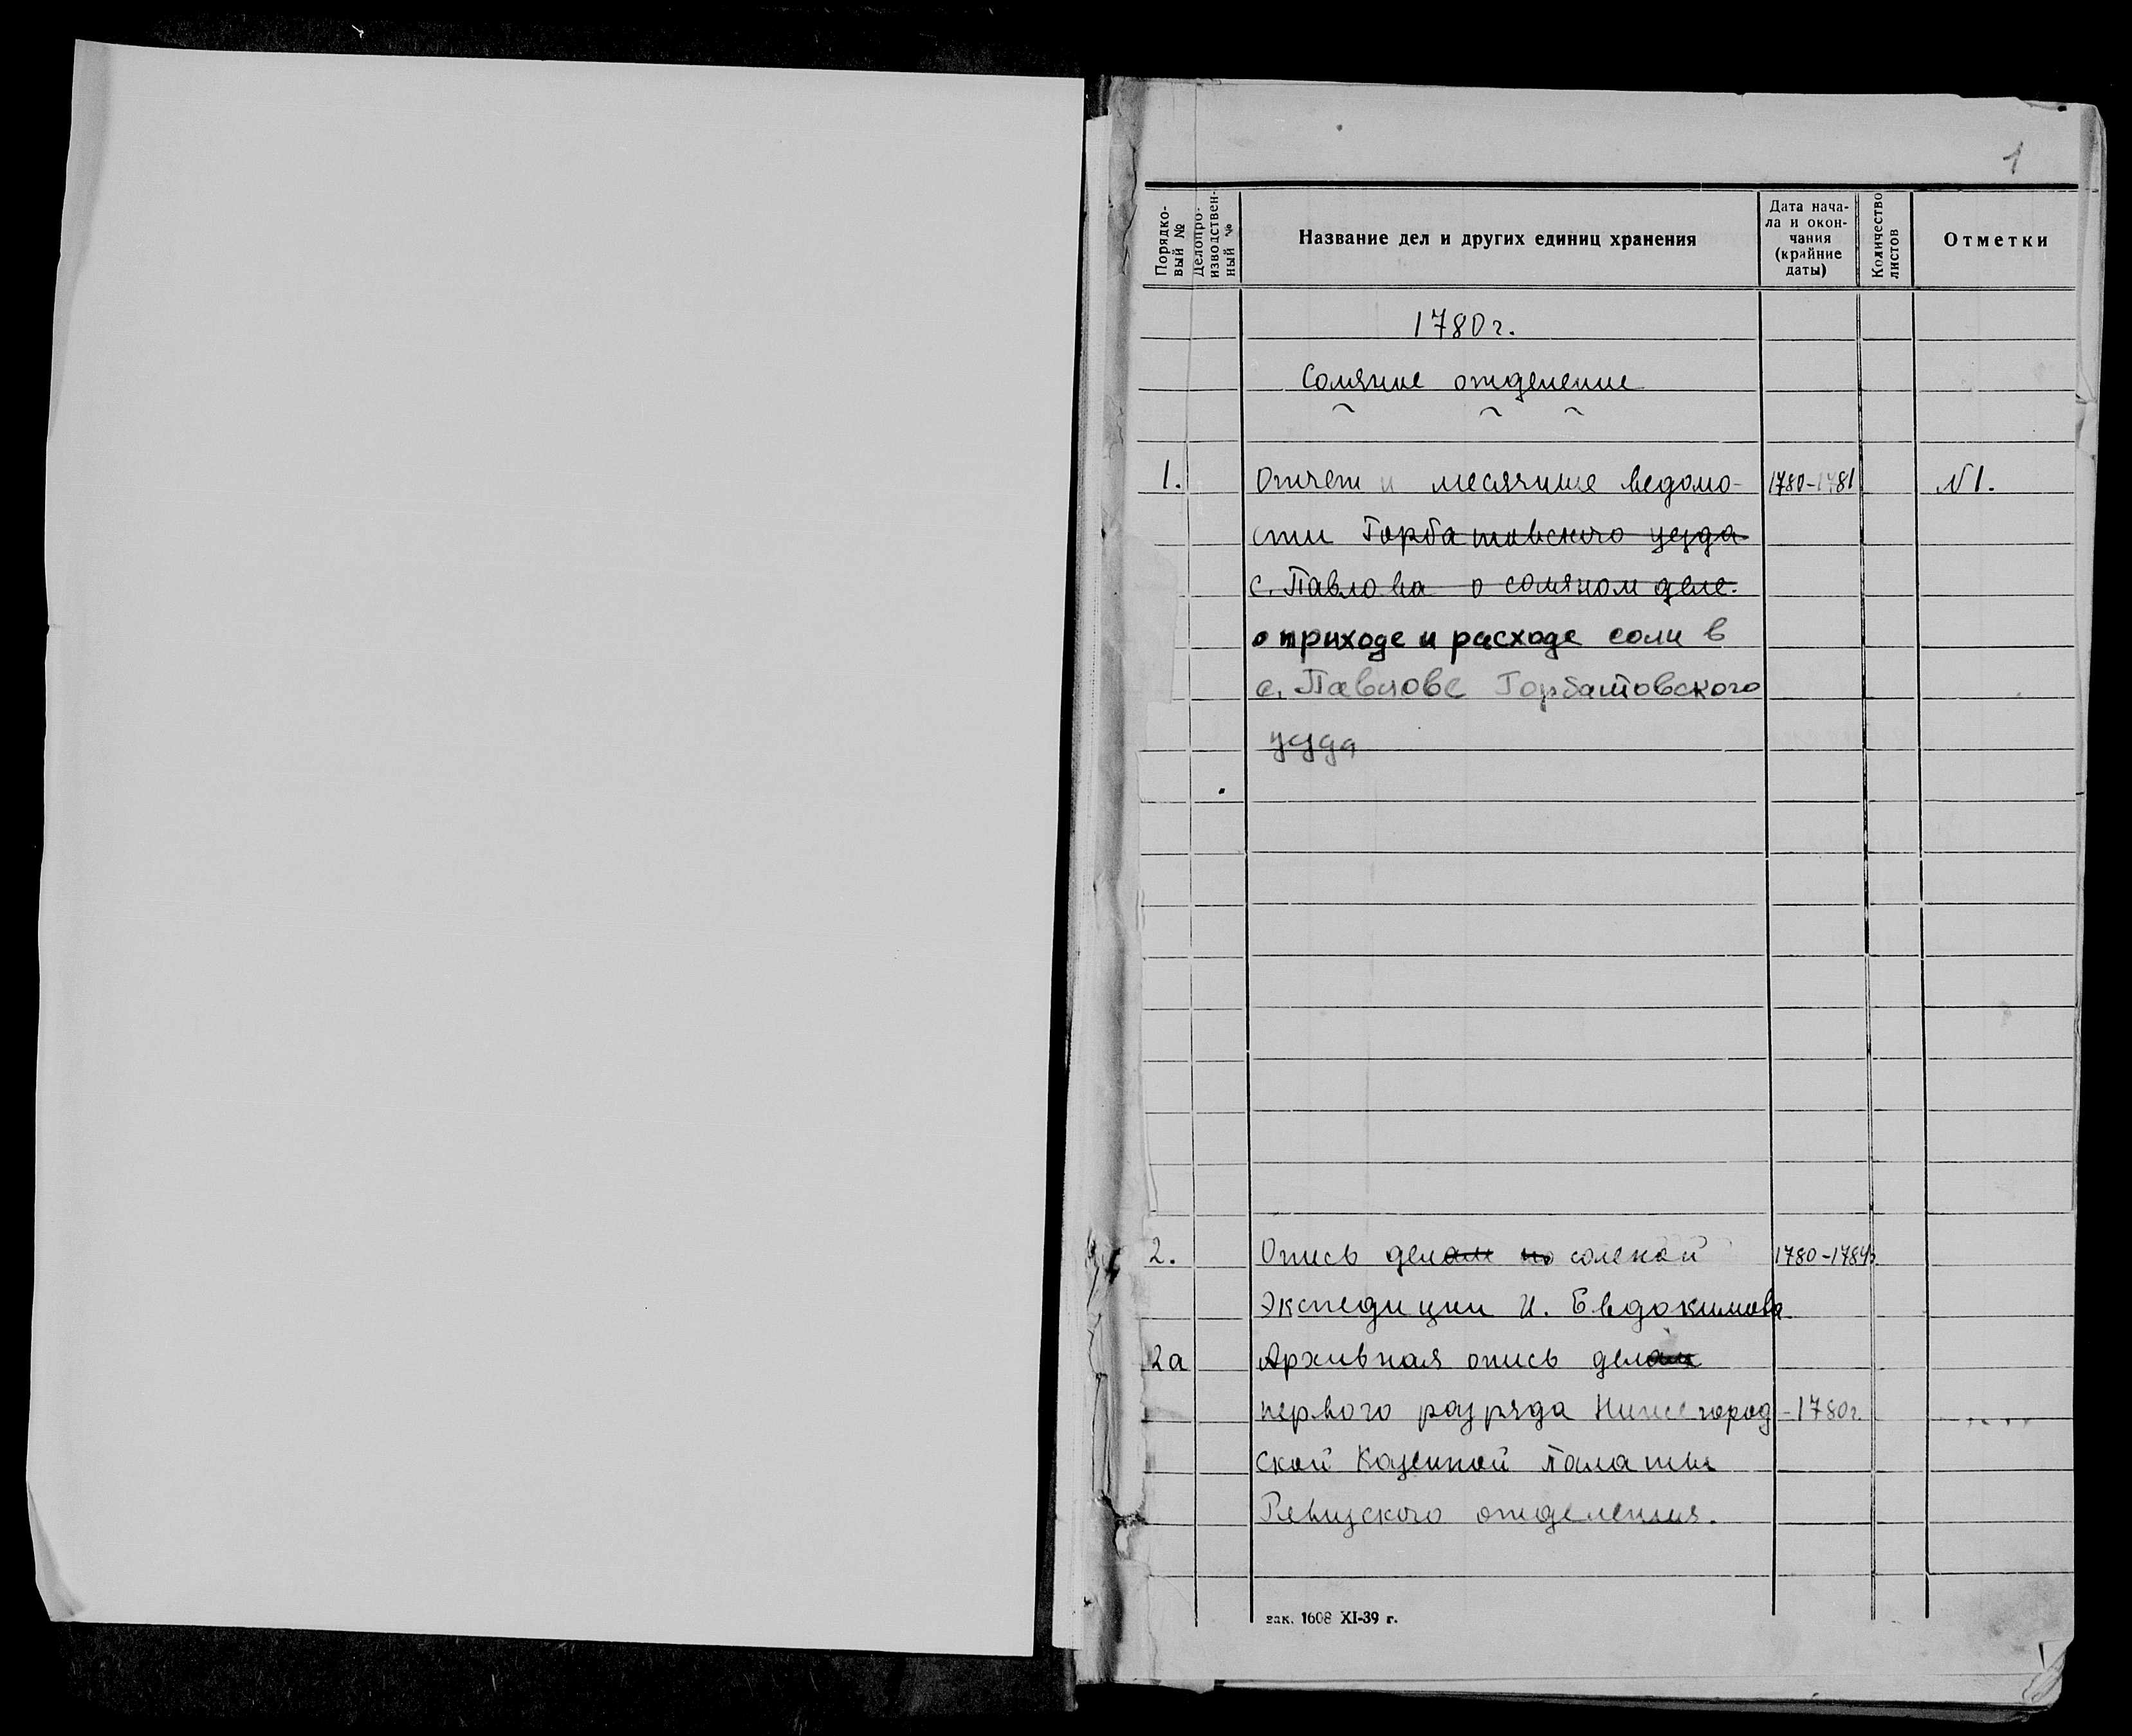 1
Порядко-
вый №
Делопро-
изводствен-
ный №
Название дел и других единиц хранения
Дата нача-
ла и окон-
чания
(крайние
даты)
Количество
листов
Отметки
1780 г.
Соляное отделение
1. Отчет и месячные ведомо- 1780-1781 № 1.
сти Горбатовского уезда
с. Павлова о соляном деле.
о приходе и расходе соли в
с. Павлове Горбатовского
уезда
2. Опись делам по соленой 1780-1784
Экспедиции И. Евдокимова
2а Архивная опись делам
первого разряда Нижегород -1780г.
ской Казенной Палаты
Ревизского отделения.
зак. 1608 XI-39 г.